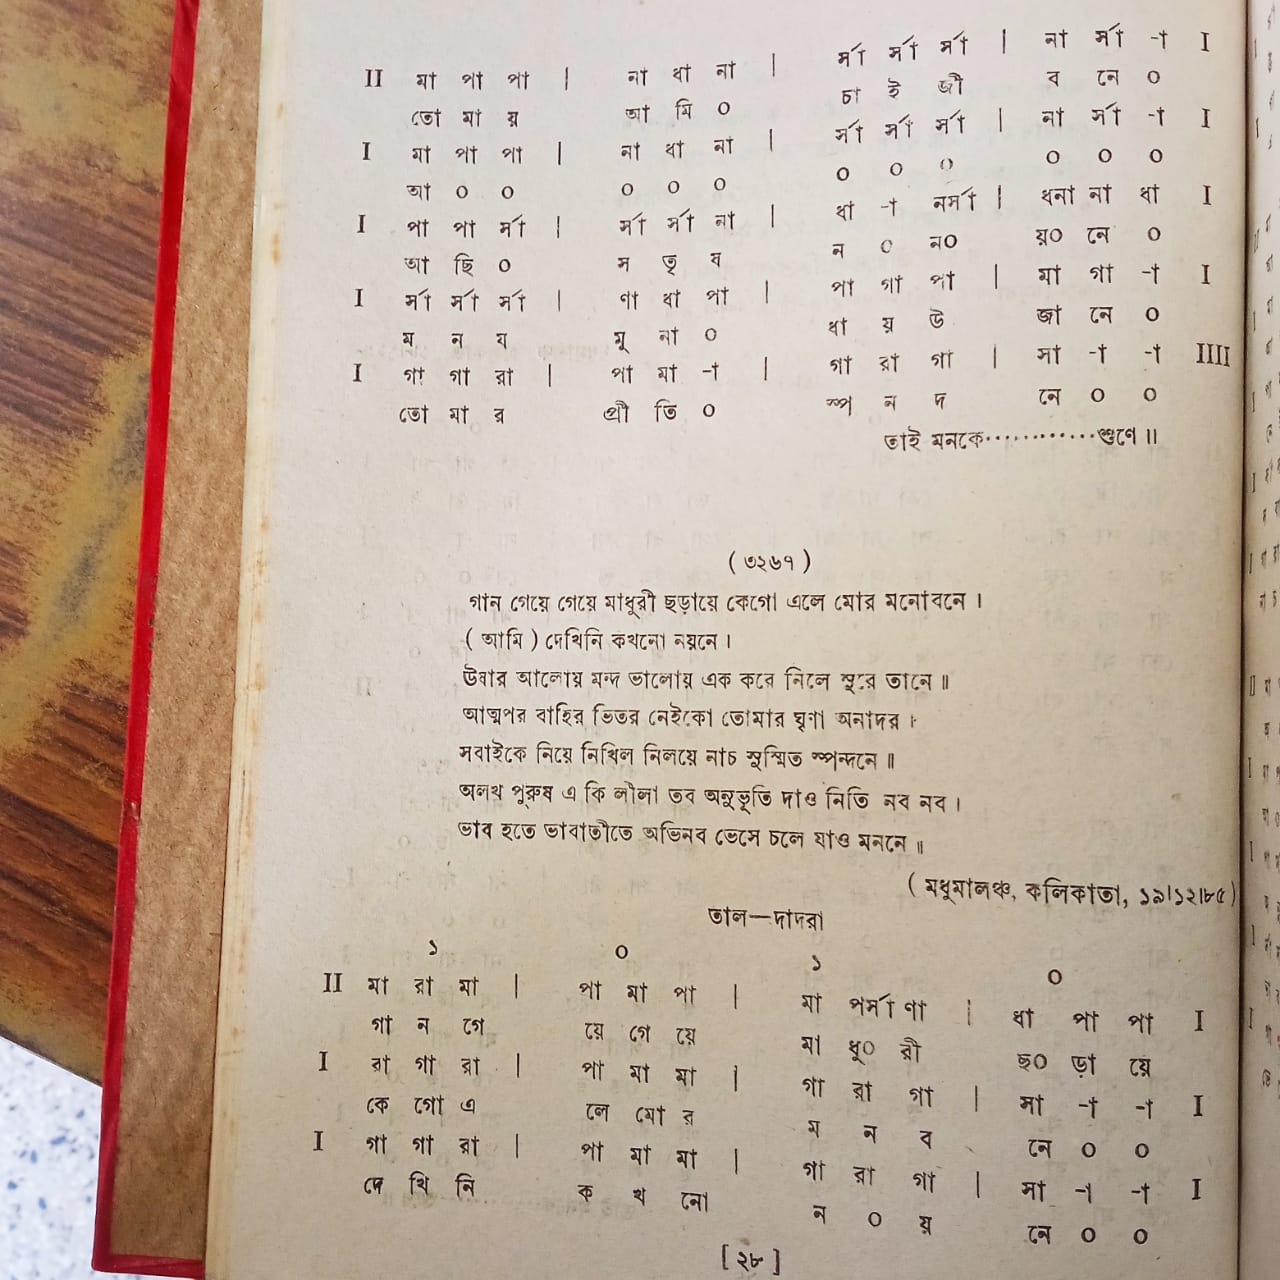 II মা পা পা | না ধা না | র্সা র্সা র্সা | না র্সা -া I
তো মা য় আ মি ০ চা ই জী ব নে ০
I মা পা পা | না ধা না | র্সা র্সা র্সা | না র্সা -া I
আ ০ ০ ০ ০ ০ ০ ০ ০ ০ ০ ০
I পা পা র্সা | র্সা র্সা না | ধা -া নর্সা | ধনা না ধা I
আ ছি ০ স তৃ ষ ন ০ ন০ য়০ নে ০
I র্সা র্সা র্সা | ণা ধা পা | পা গা পা | মা গা -া I
ম ন য মু না ০ ধা য় উ জা নে ০
I গা গা রা | পা মা -া | গা রা গা | সা -া -া IIII
তো মা র প্রী তি ০ স্প ন দ নে ০ ০
তাই মনকে............শুণে ॥
( ৩২৬৭ )
গান গেয়ে গেয়ে মাধুরী ছড়ায়ে কেগো এলে মোর মনোবনে ।
( আমি ) দেখিনি কখনো নয়নে ।
উষার আলোয় মন্দ ভালোয় এক করে নিলে সুরে তানে ॥
আত্মপর বাহির ভিতর নেইকো তোমার ঘৃণা অনাদর ।
সবাইকে নিয়ে নিখিল নিলয়ে নাচ সুস্মিত স্পন্দনে ॥
অলখ পুরুষ এ কি লীলা তব অনুভূতি দাও নিতি নব নব ।
ভাব হতে ভাবাতীতে অভিনব ভেসে চলে যাও মননে ॥
( মধুমালঞ্চ, কলিকাতা, ১৯।১২।৮৫ )
তাল—দাদরা
১ ০ ১ ০
II মা রা মা | পা মা পা | মা পর্সা ণা | ধা পা পা I
গা ন গে য়ে গে য়ে মা ধু০ রী ছ০ ড়া য়ে
I রা গা রা | পা মা মা | গা রা গা | সা -া -া I
কে গো এ লে মো র ম ন ব নে ০ ০
I গা গা রা | পা মা মা | গা রা গা | সা -া -া I
দে খি নি ক খ নো ন ০ য় নে ০ ০
[ ২৮ ]